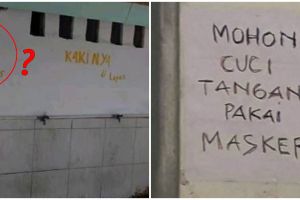 ?
KAKINYA
di Lepas
MOHON
CUCI
TANGAN
PAKAI
MASKER